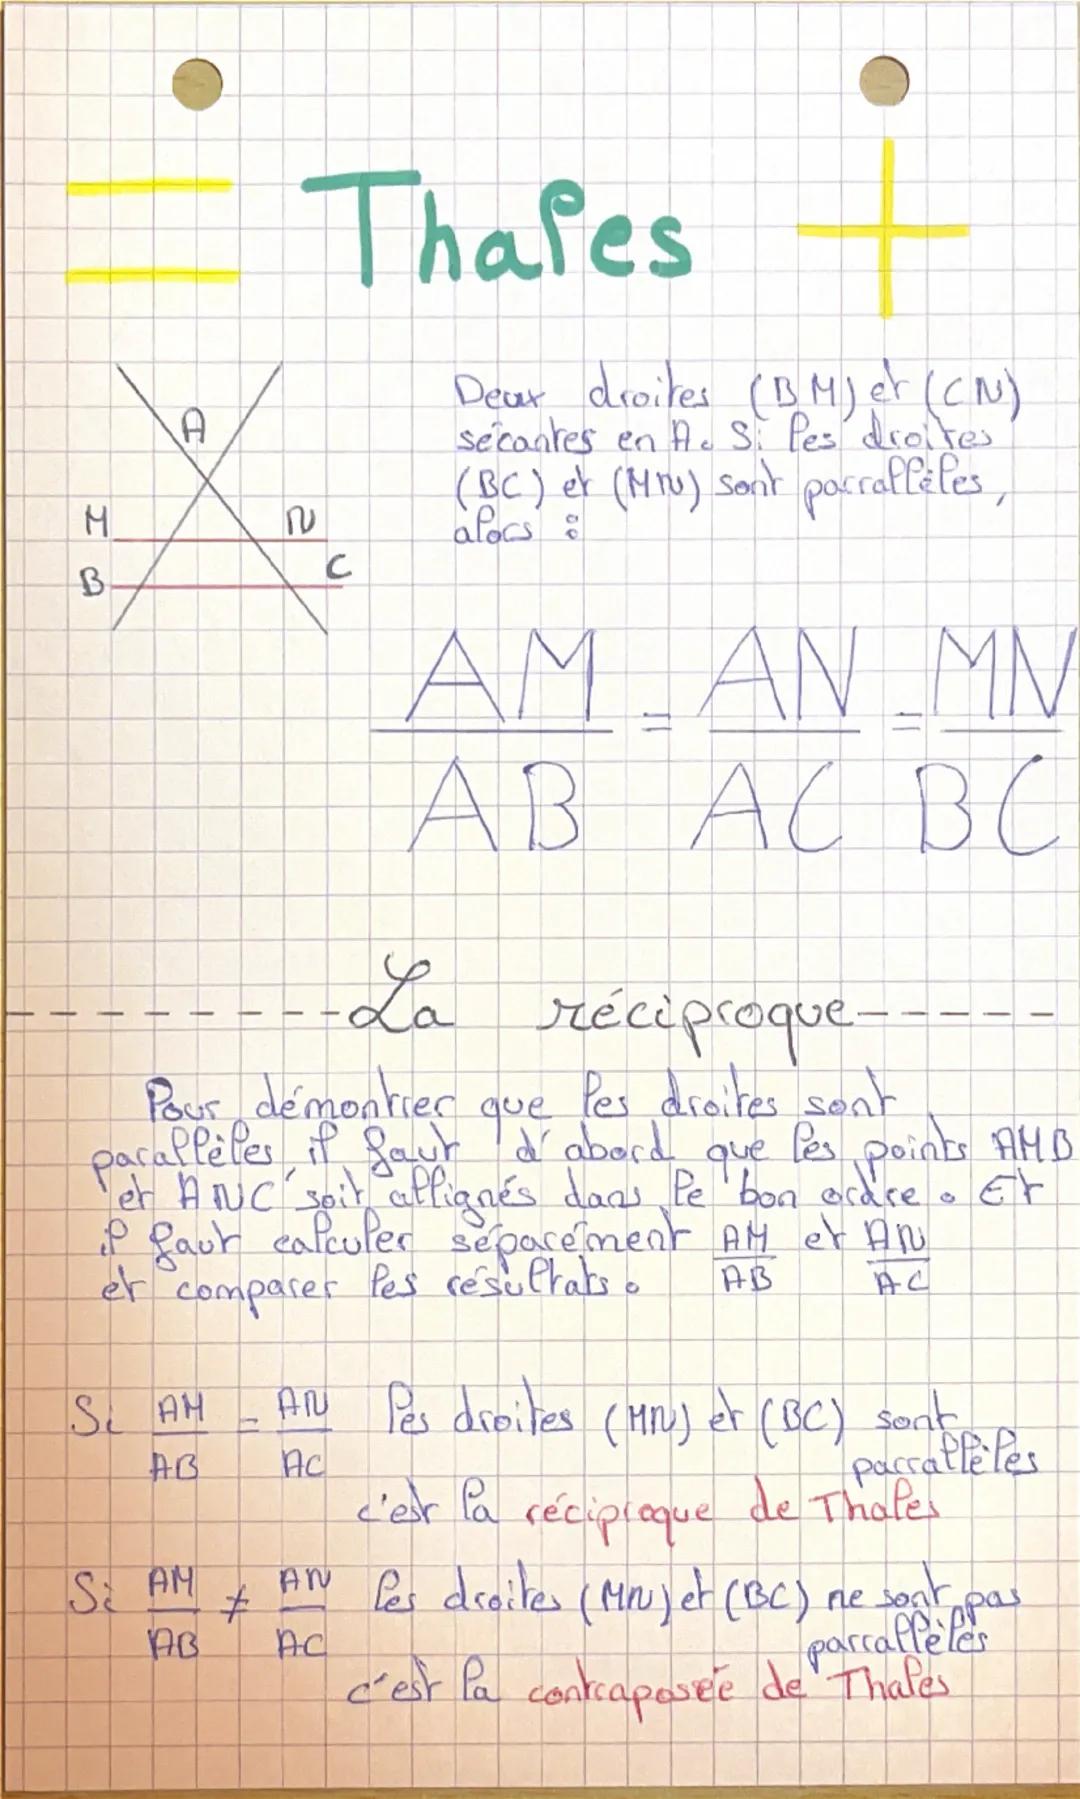 Thales
A
M N
B C
Deux droites (BM) et (CN)
sécantes en A. Si les droites
(BC) et (MN) sont parrallèles,
alors :
AM = AN = MN
AB AC BC
La réciproque
Pour démontrer que les droites sont
parallèles, il faut d'abord que les points AMB
et ANC soit allignés dans le bon ordre. Et
il faut calculer séparément AM et AN
AB AC
et comparer les résultats.
Si AM = AN les droites (MN) et (BC) sont
AB AC parrallèles
c'est la réciproque de Thales
Si AM ≠ AN les droites (MN) et (BC) ne sont pas
AB AC parrallèles
c'est la contraposée de Thales